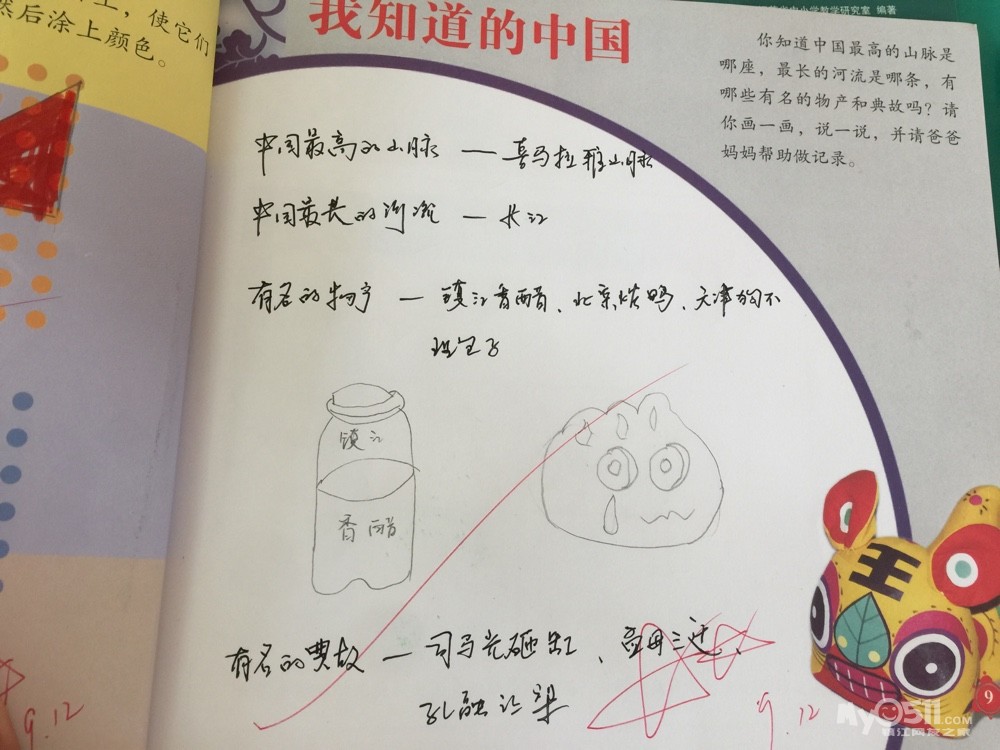 上,使它们
然后涂上颜色。
小学教学研究室 编著
我知道的中国
你知道中国最高的山脉是
哪座,最长的河流是哪条,有
哪些有名的物产和典故吗?请
你画一画,说一说,并请爸爸
妈妈帮助做记录。
中国最高的山脉 — 喜马拉雅山脉
中国最长的河流 — 长江
有名的物产 — 镇江香醋、北京烤鸭、天津狗不
理包子
镇江
香醋
有名的典故 — 司马光砸缸、孟母三迁、
孔融让梨
王
9.12
9.12
9
My0511.com
镇江网友之家